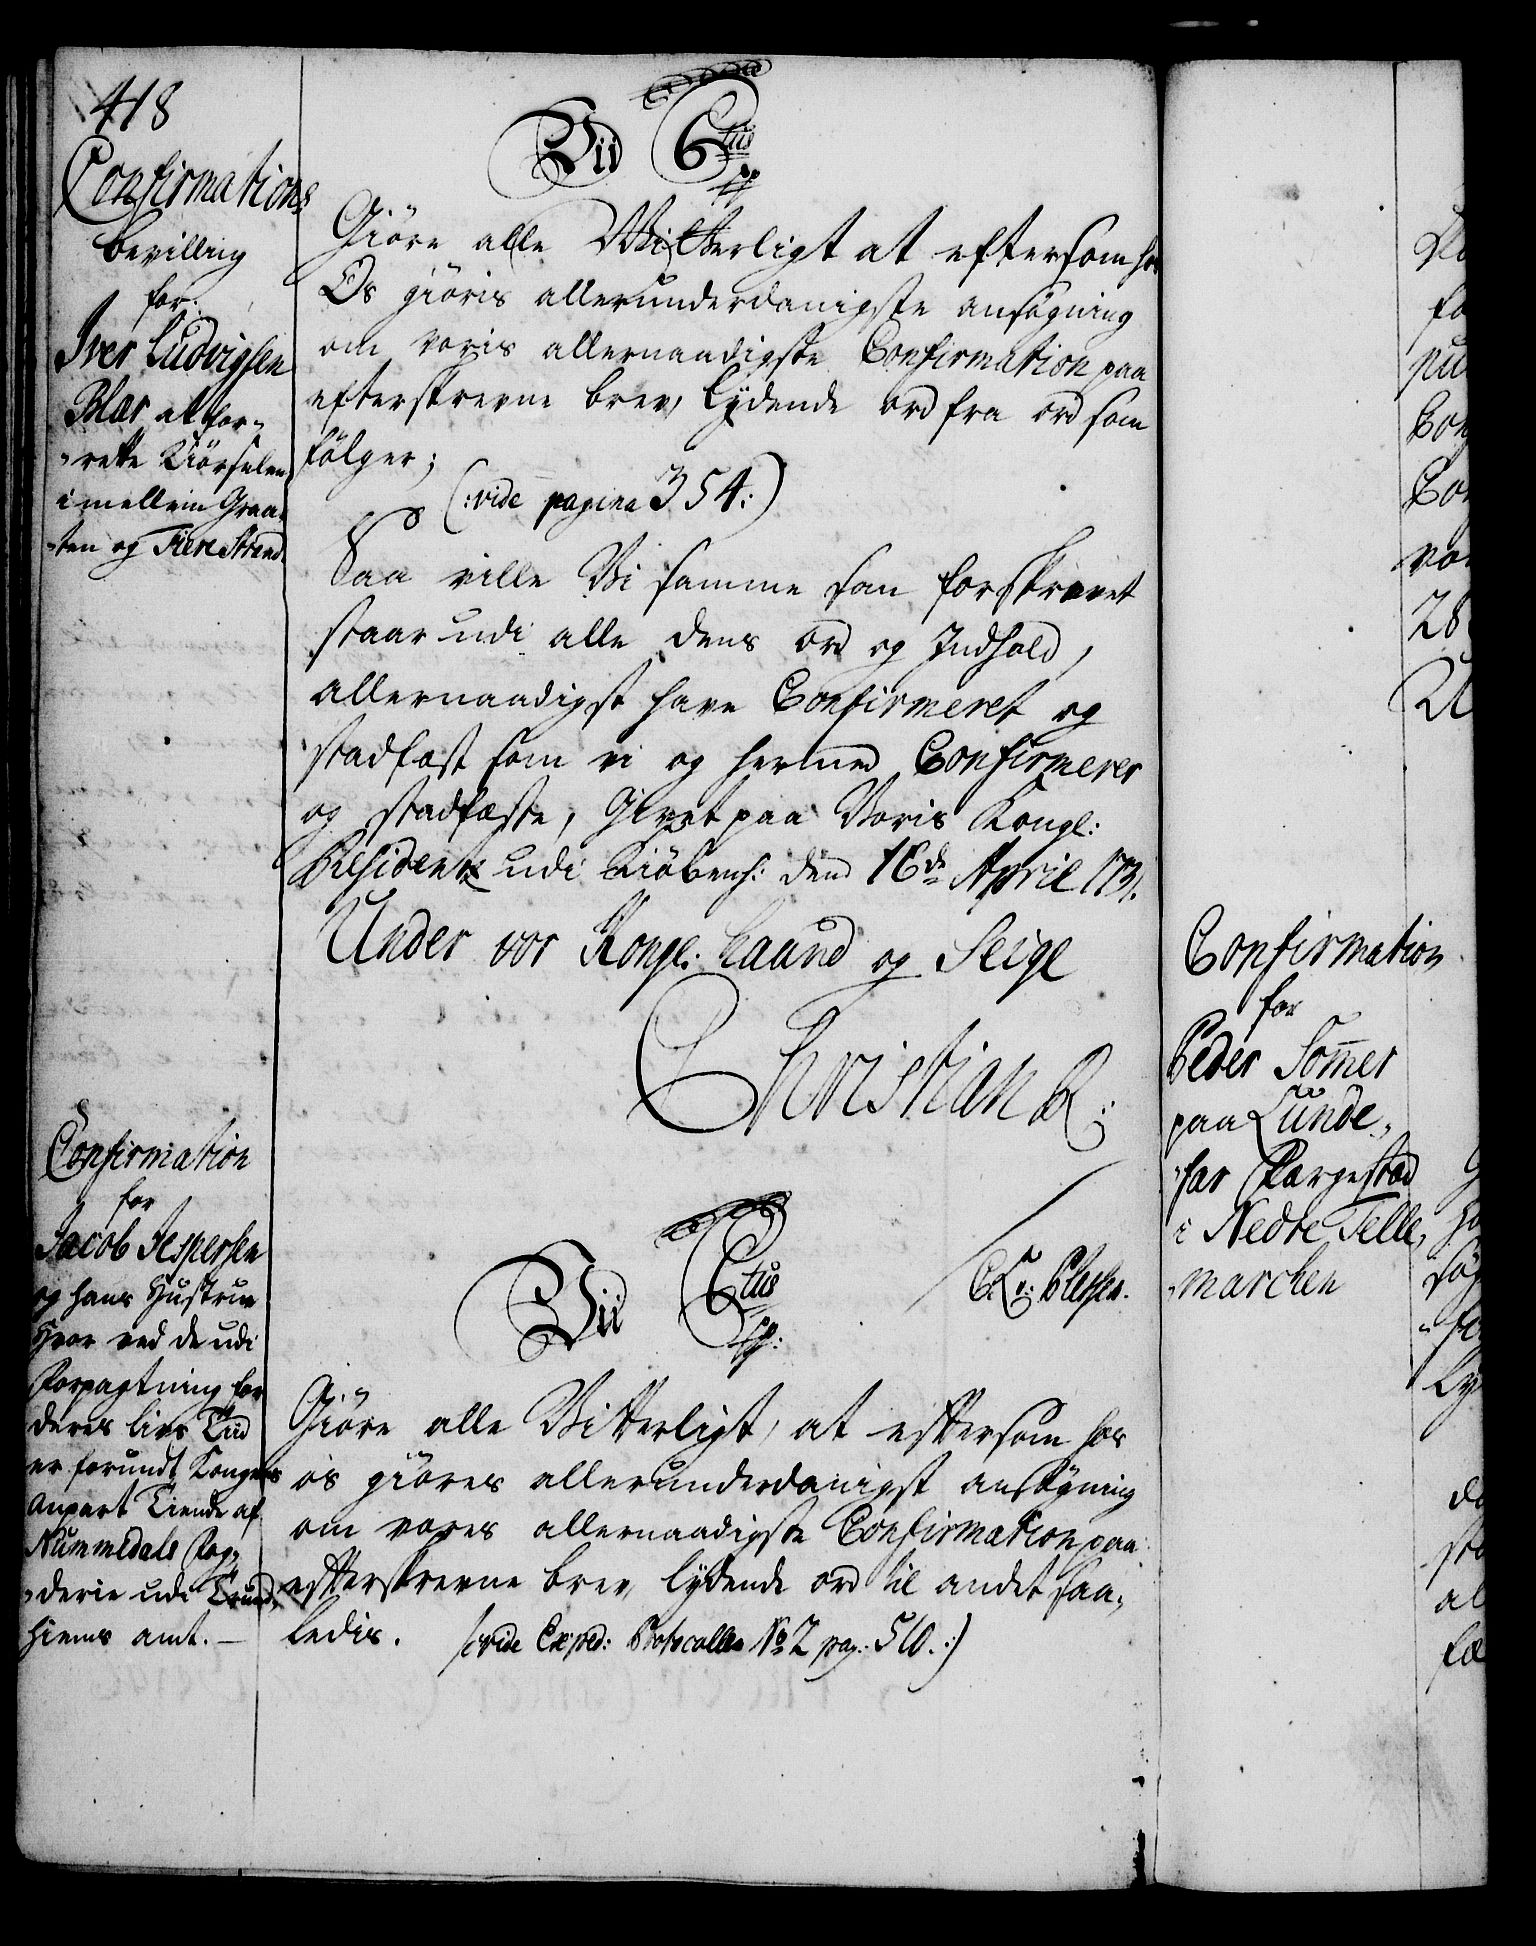 418
Confirmations
bevilling
for
Iver Ludvigsen
Blær at for-
-rette Kiörselen
imellem Graa-
-ten og Fiere Strand.
Vii C6tus
pp
Giöre alle Witterligt at eftersom hos
Os giöris allerunderdanigste ansögning
om voris allernaadigste Confirmation paa
efterskrevne brev, lÿdende ord fra ord som
fölger;
(:vide pagina 354:)
Saa ville Vi samme som forskrevet
staar udi alle dens ord og Indhold,
allernaadigst have Confirmeret og
stadfæst som vi og hermed Confirmerer
og stadfæste, Givet paa Voris Kongl:
Residentz udi Kiöbenh: den 16de April 1731.
Under vor Kongl: haand og Seigl
Christian R:
C. A: v: Plessen.
Confirmation
for
Jacob Jespersen
og hans Hustrue
Hvor ved de udi
Forpagtning for
deres livs Tiid
er forundt Kongens
Anpart Tiende af
Nummedals Fog-
-derie udi Trund-
hiems amt. —
Vii C6tus
pp:
Giöre alle Witterligt, at eftersom hos
os giöres allerunderdanigst ansögning
om vores allernaadigste Confirmation paa
efterskrevne brev, lÿdende ord til andet saa-
ledis. (:vide Exped: Protocollen No 2 pag: 510.:)
Confirmation
for
Peder Somer
paa Lunde-
-har Færgestæd
i Nedre Telle-
-marchen